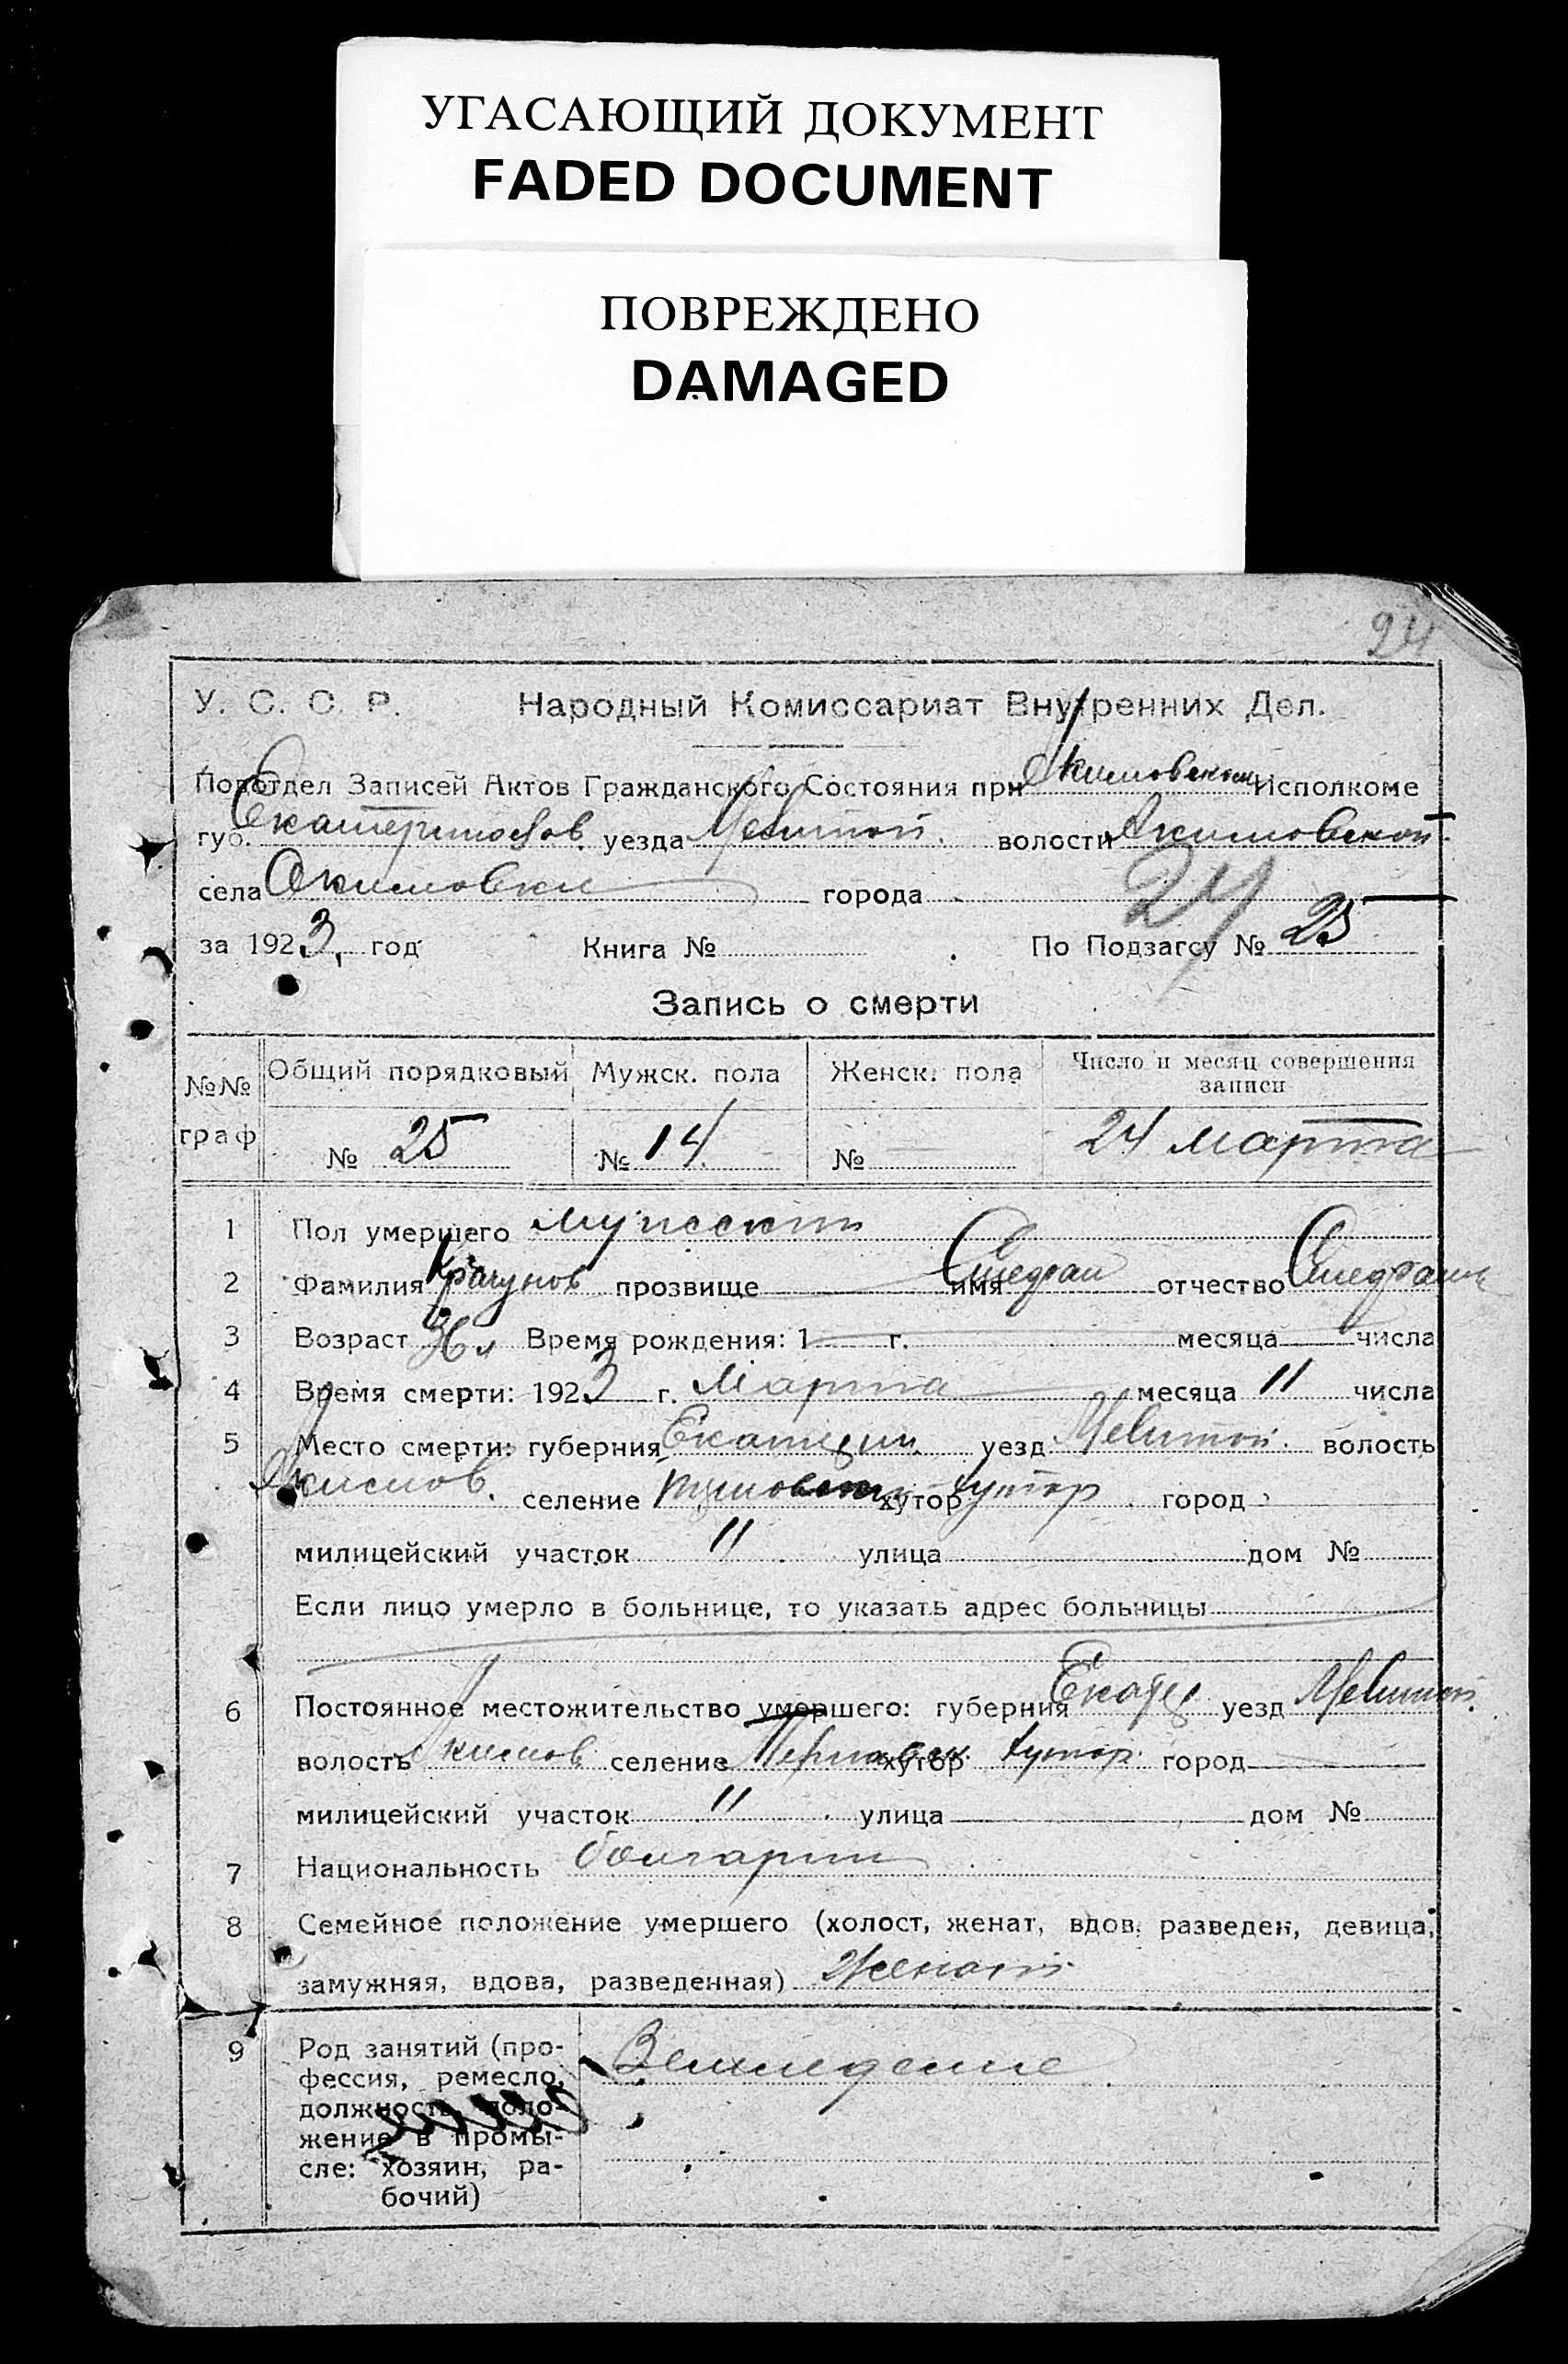 УГАСАЮЩИЙ ДОКУМЕНТ
FADED DOCUMENT
ПОВРЕЖДЕНО
DAMAGED
24
У. С. С. Р. Народный Комиссариат Внутренних Дел.
Подотдел Записей Актов Гражданского Состояния при Акимовском Исполкоме
губ. Екатеринослав. уезда Мелитоп. волости Акимовской
села Акимовки города
24
за 1923 год Книга № По Подзагсу № 25
Запись о смерти
№№ граф Общий порядковый Мужск. пола Женск. пола Число и месяц совершения записи
№ 25 № 14 № 24 марта
1 Пол умершего мужской
2 Фамилия Крачунов прозвище имя Степан отчество
3 Возраст Время рождения: 1 г. месяца числа
4 Время смерти: 1923 г. Марта месяца 11 числа
5 Место смерти: губерния Екатерин. уезд Мелитоп. волость
Акимов. селение хутор хутор город
милицейский участок " улица дом №
Если лицо умерло в больнице, то указать адрес больницы
6 Постоянное местожительство умершего: губерния Екатер уезд Мелитоп.
волость Акимов селение хутор хутор город
милицейский участок " улица дом №
7 Национальность болгарин
8 Семейное положение умершего (холост, женат, вдов, разведен, девица,
замужняя, вдова, разведенная) Женат
9 Род занятий (про-
фессия, ремесло,
должность, поло-
жение в промы-
сле: хозяин, ра-
бочий)
Земледелие